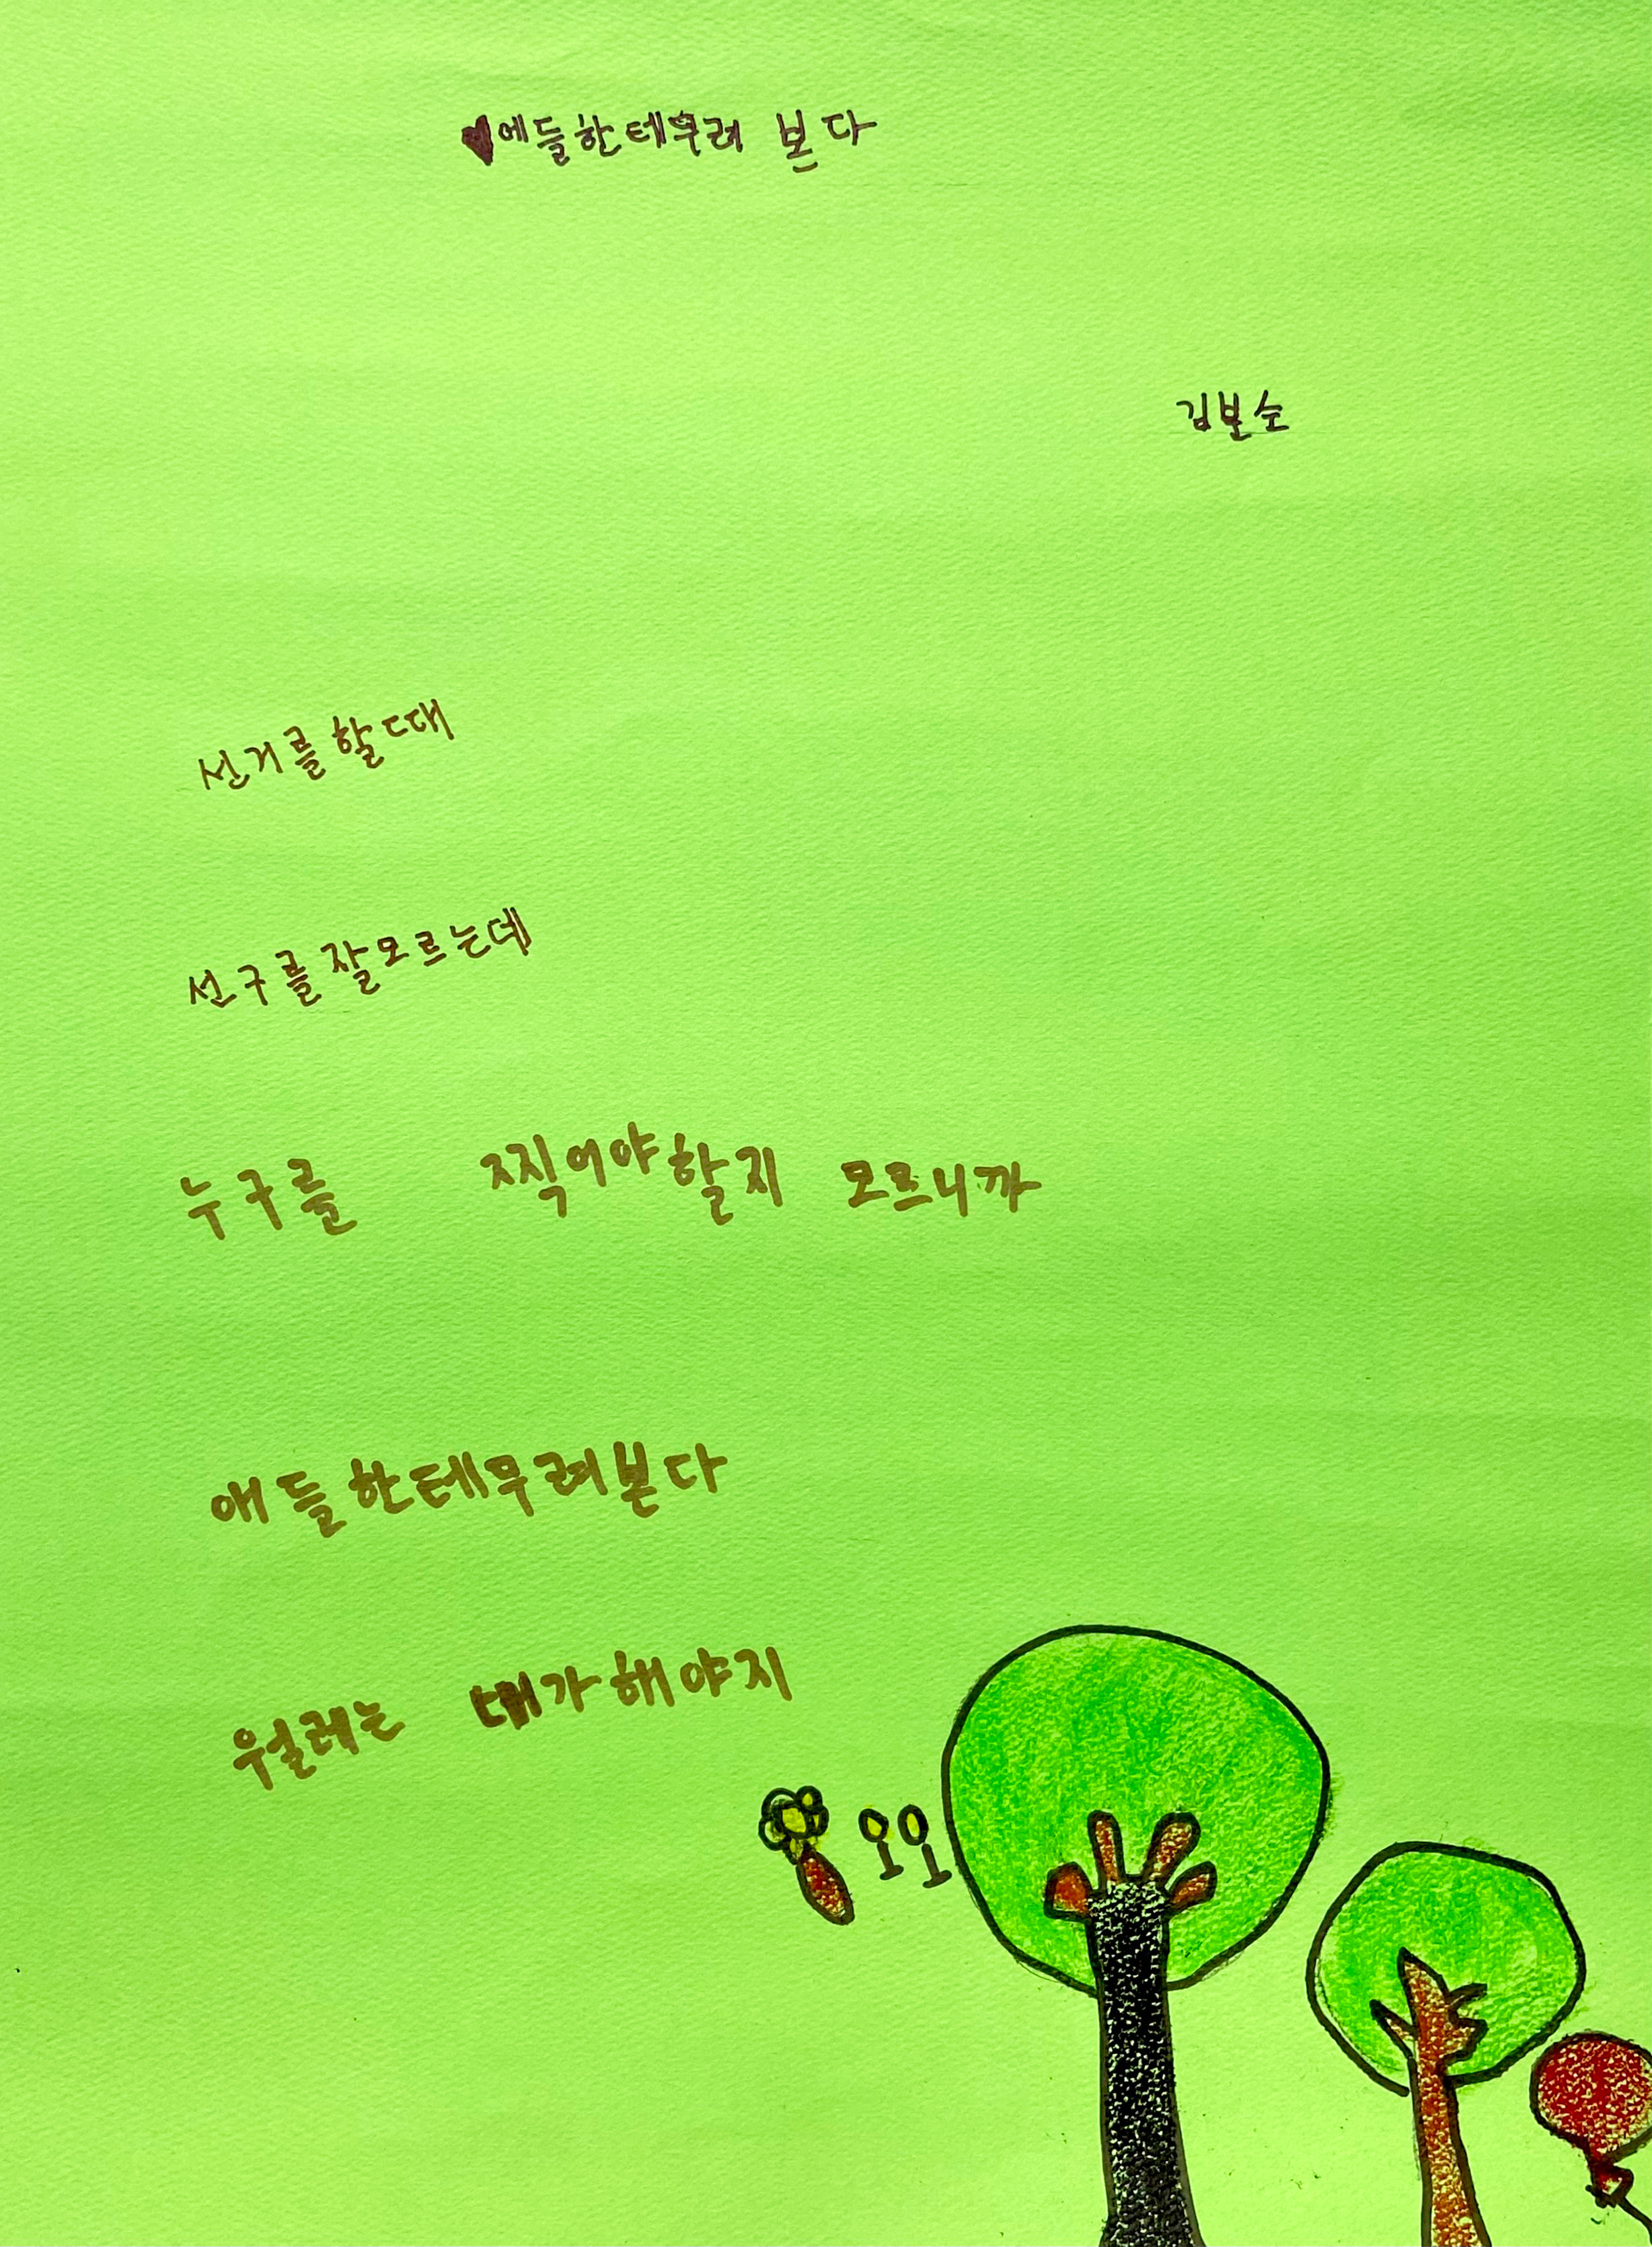 ♥에들한테무려 본다
김분순
선거를할때
선구를잘모르는데
누구를 찍어야할지 모르니까
애들한테무려본다
월레는 내가해야지